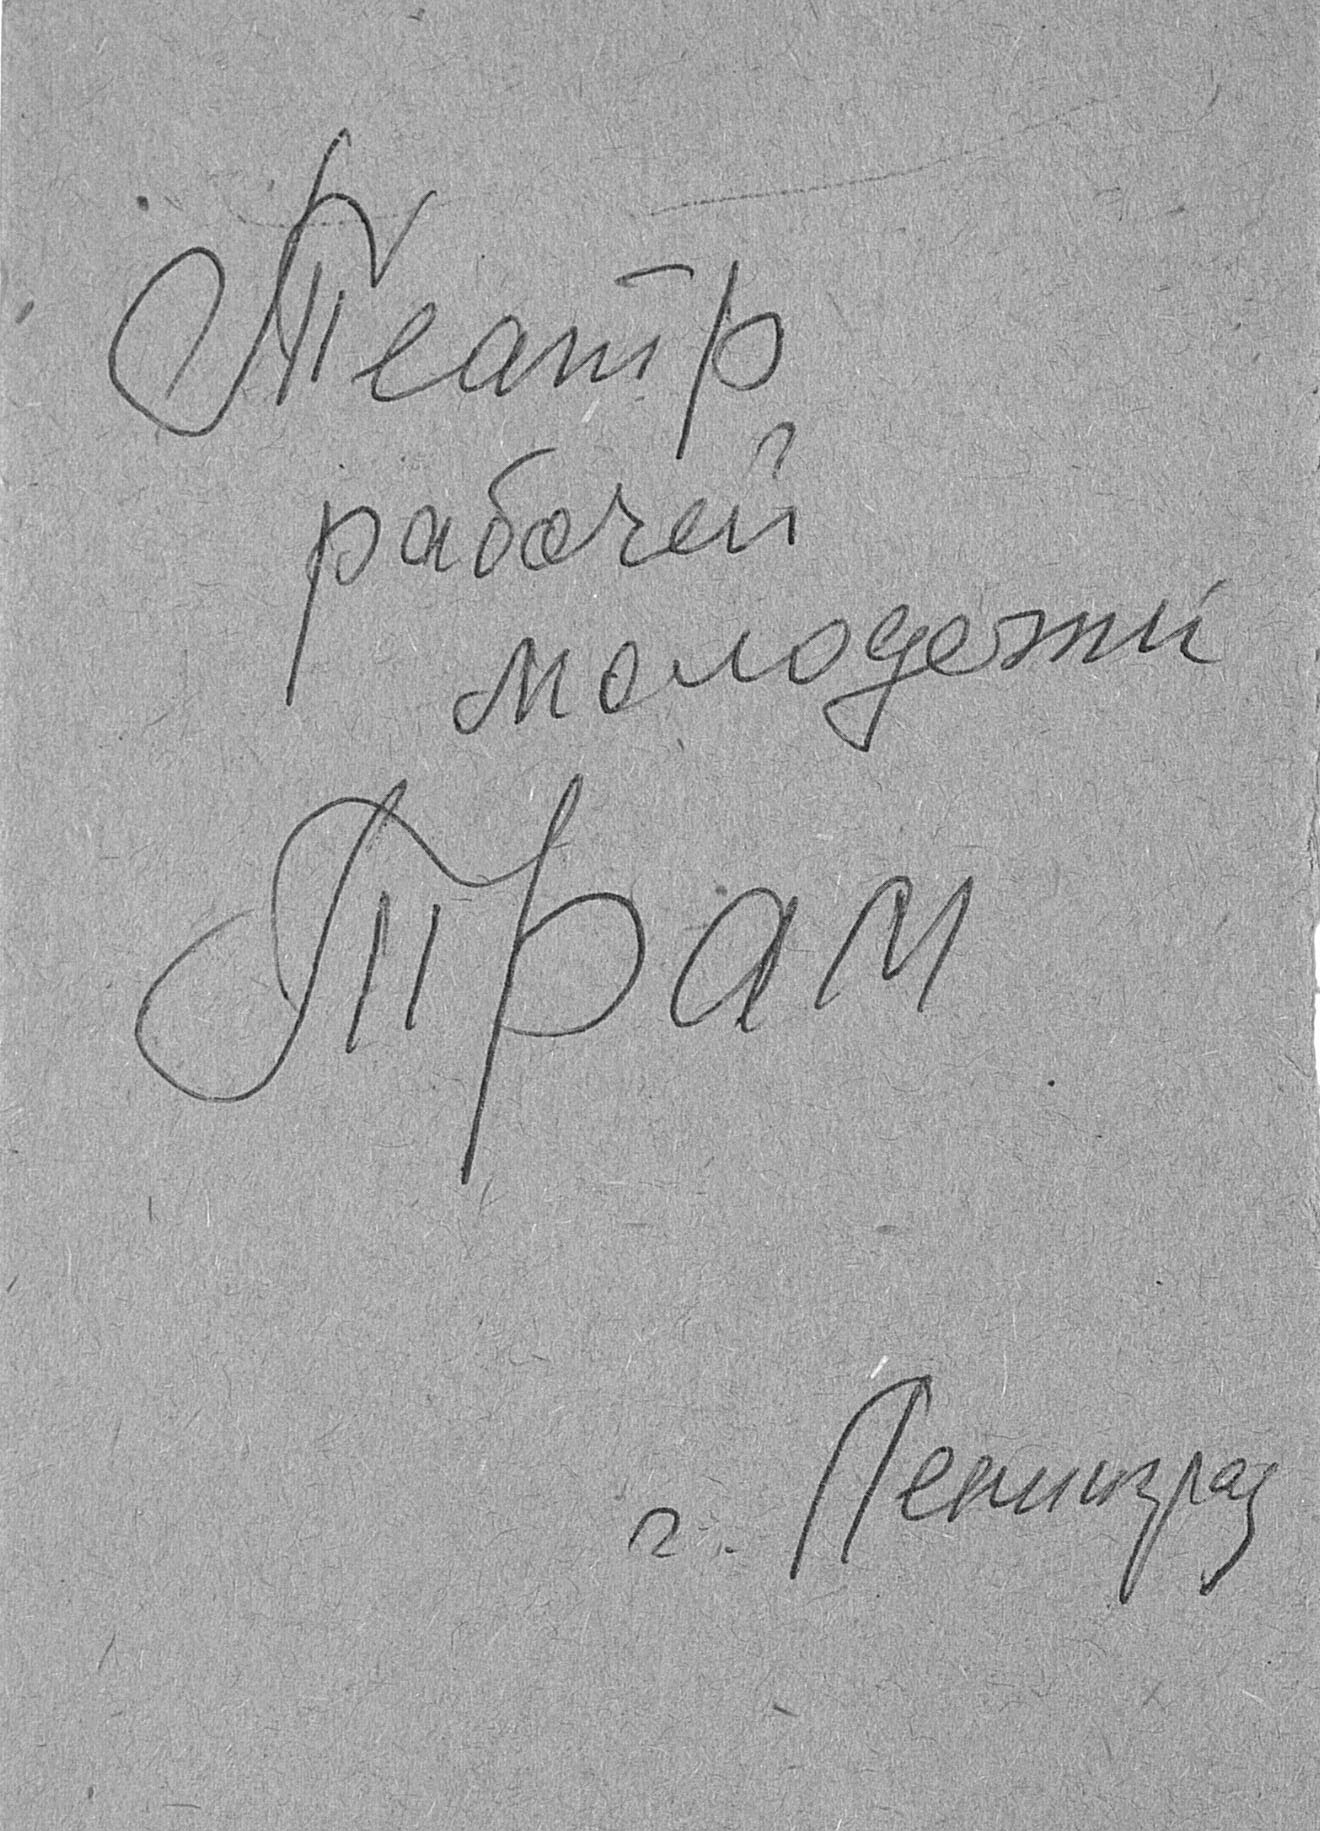 Театр
рабочей
молодежи
Трам
г. Ленинград